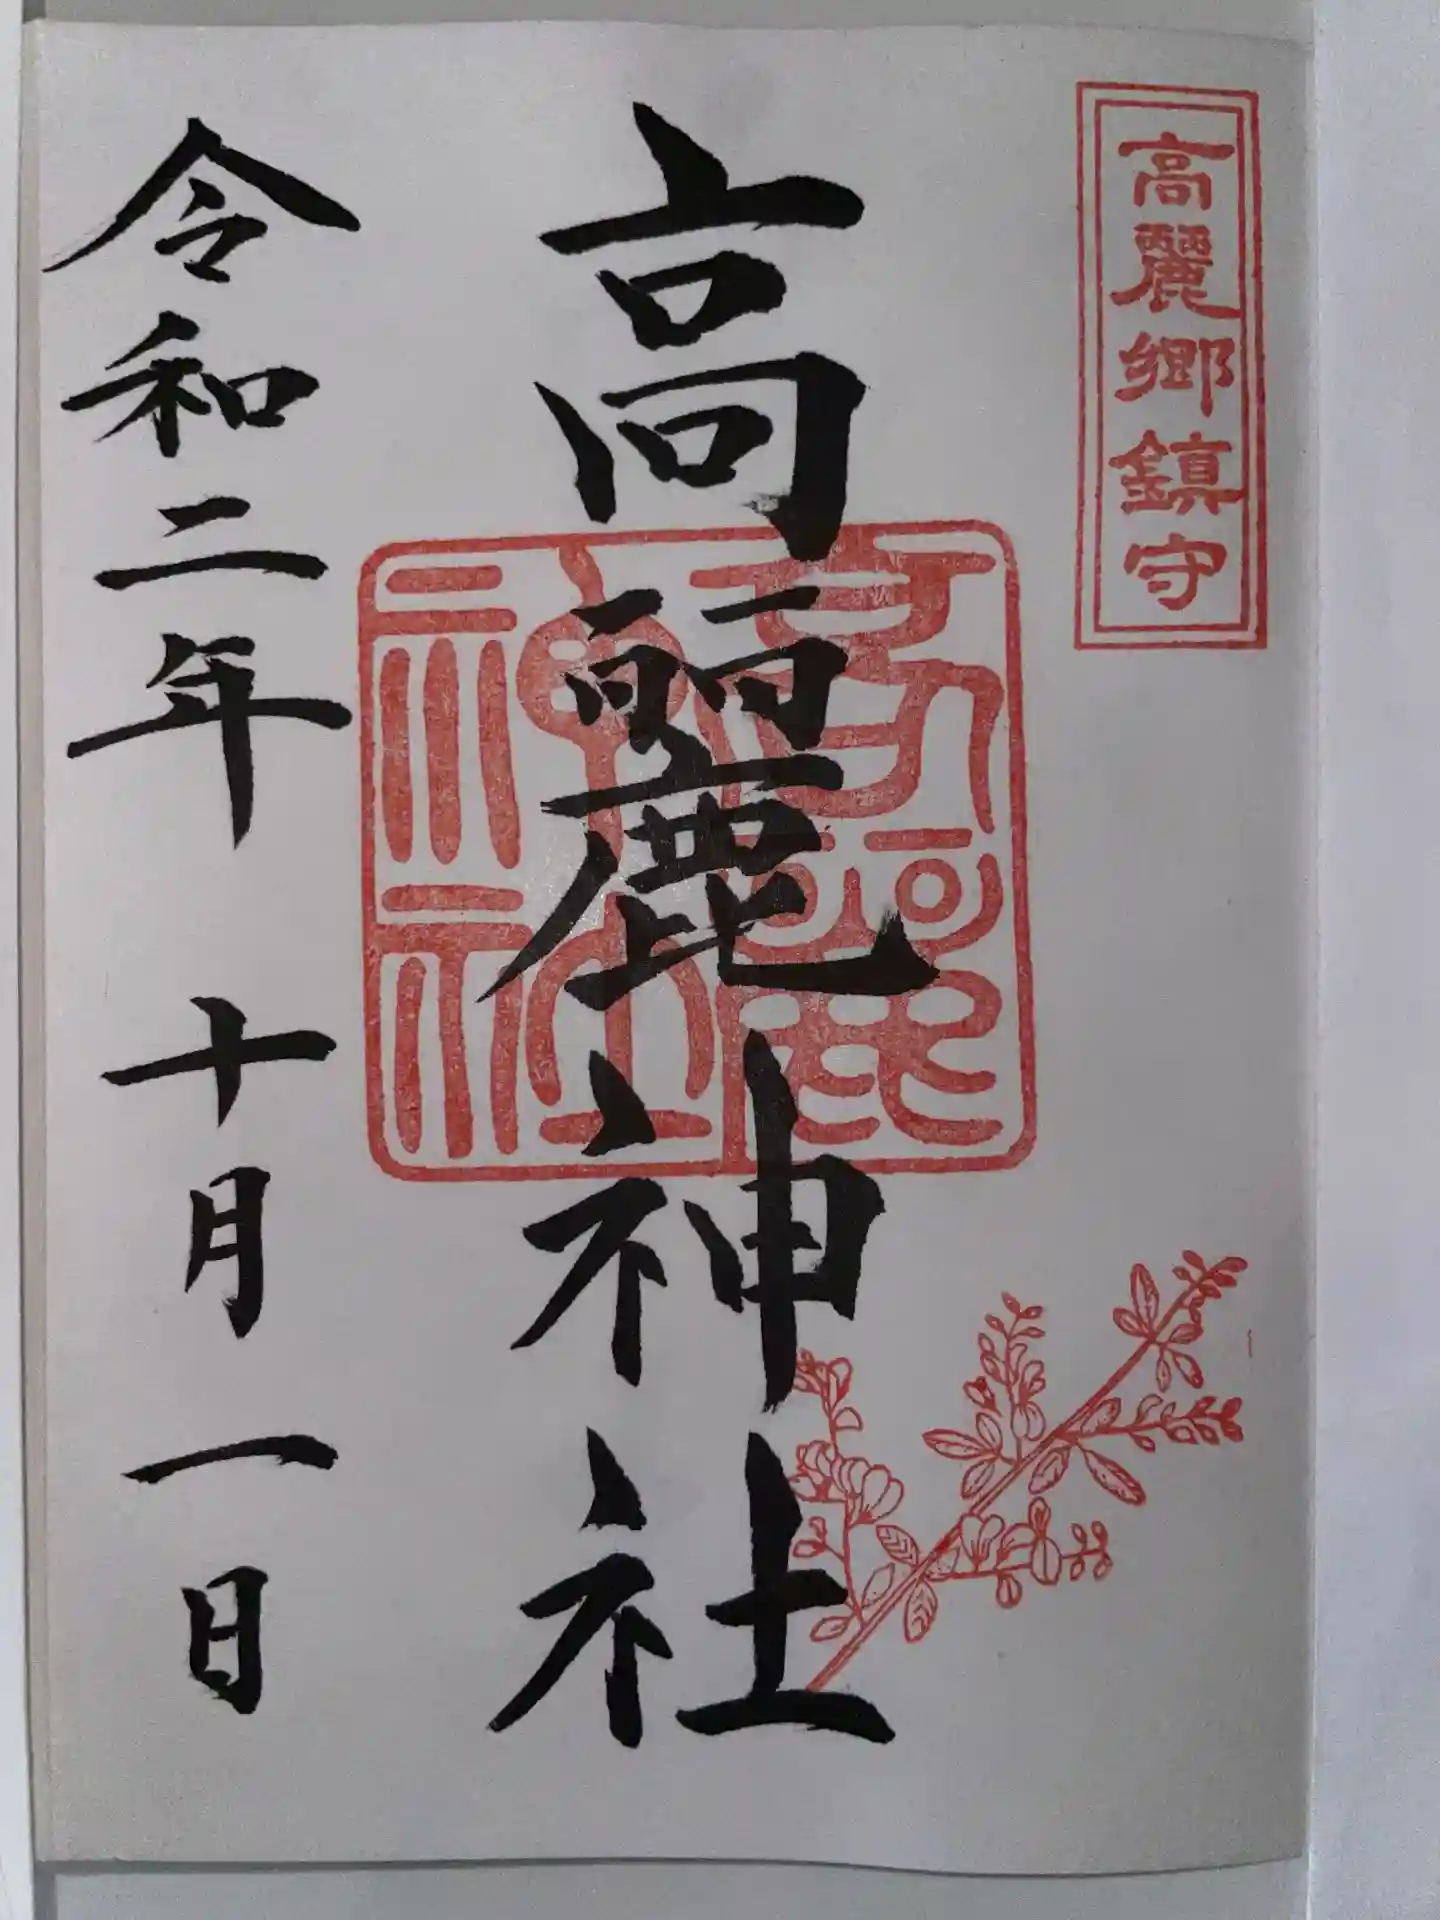 高麗郷鎮守
高麗神社
高麗神社
令和二年十月一日